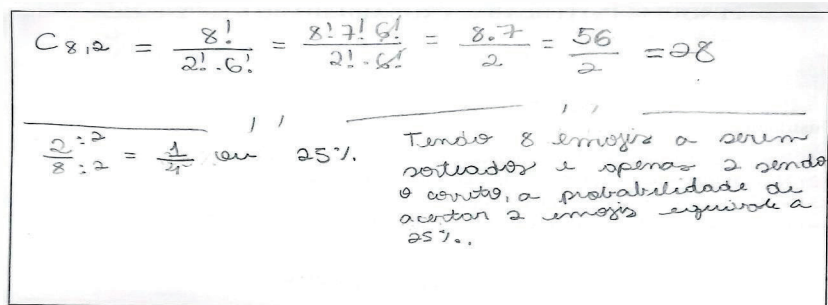 C 8,2 = 8!/2!.6! = 8!7!6!/2!.6! = 8.7/2 = 56/2 = 28
2:2/8:2 = 1/4 ou 25%.
Tendo 8 emojis a serem
sorteados e apenas 2 sendo
o correto, a probabilidade de
acertar 2 emojis equivale a
25%.